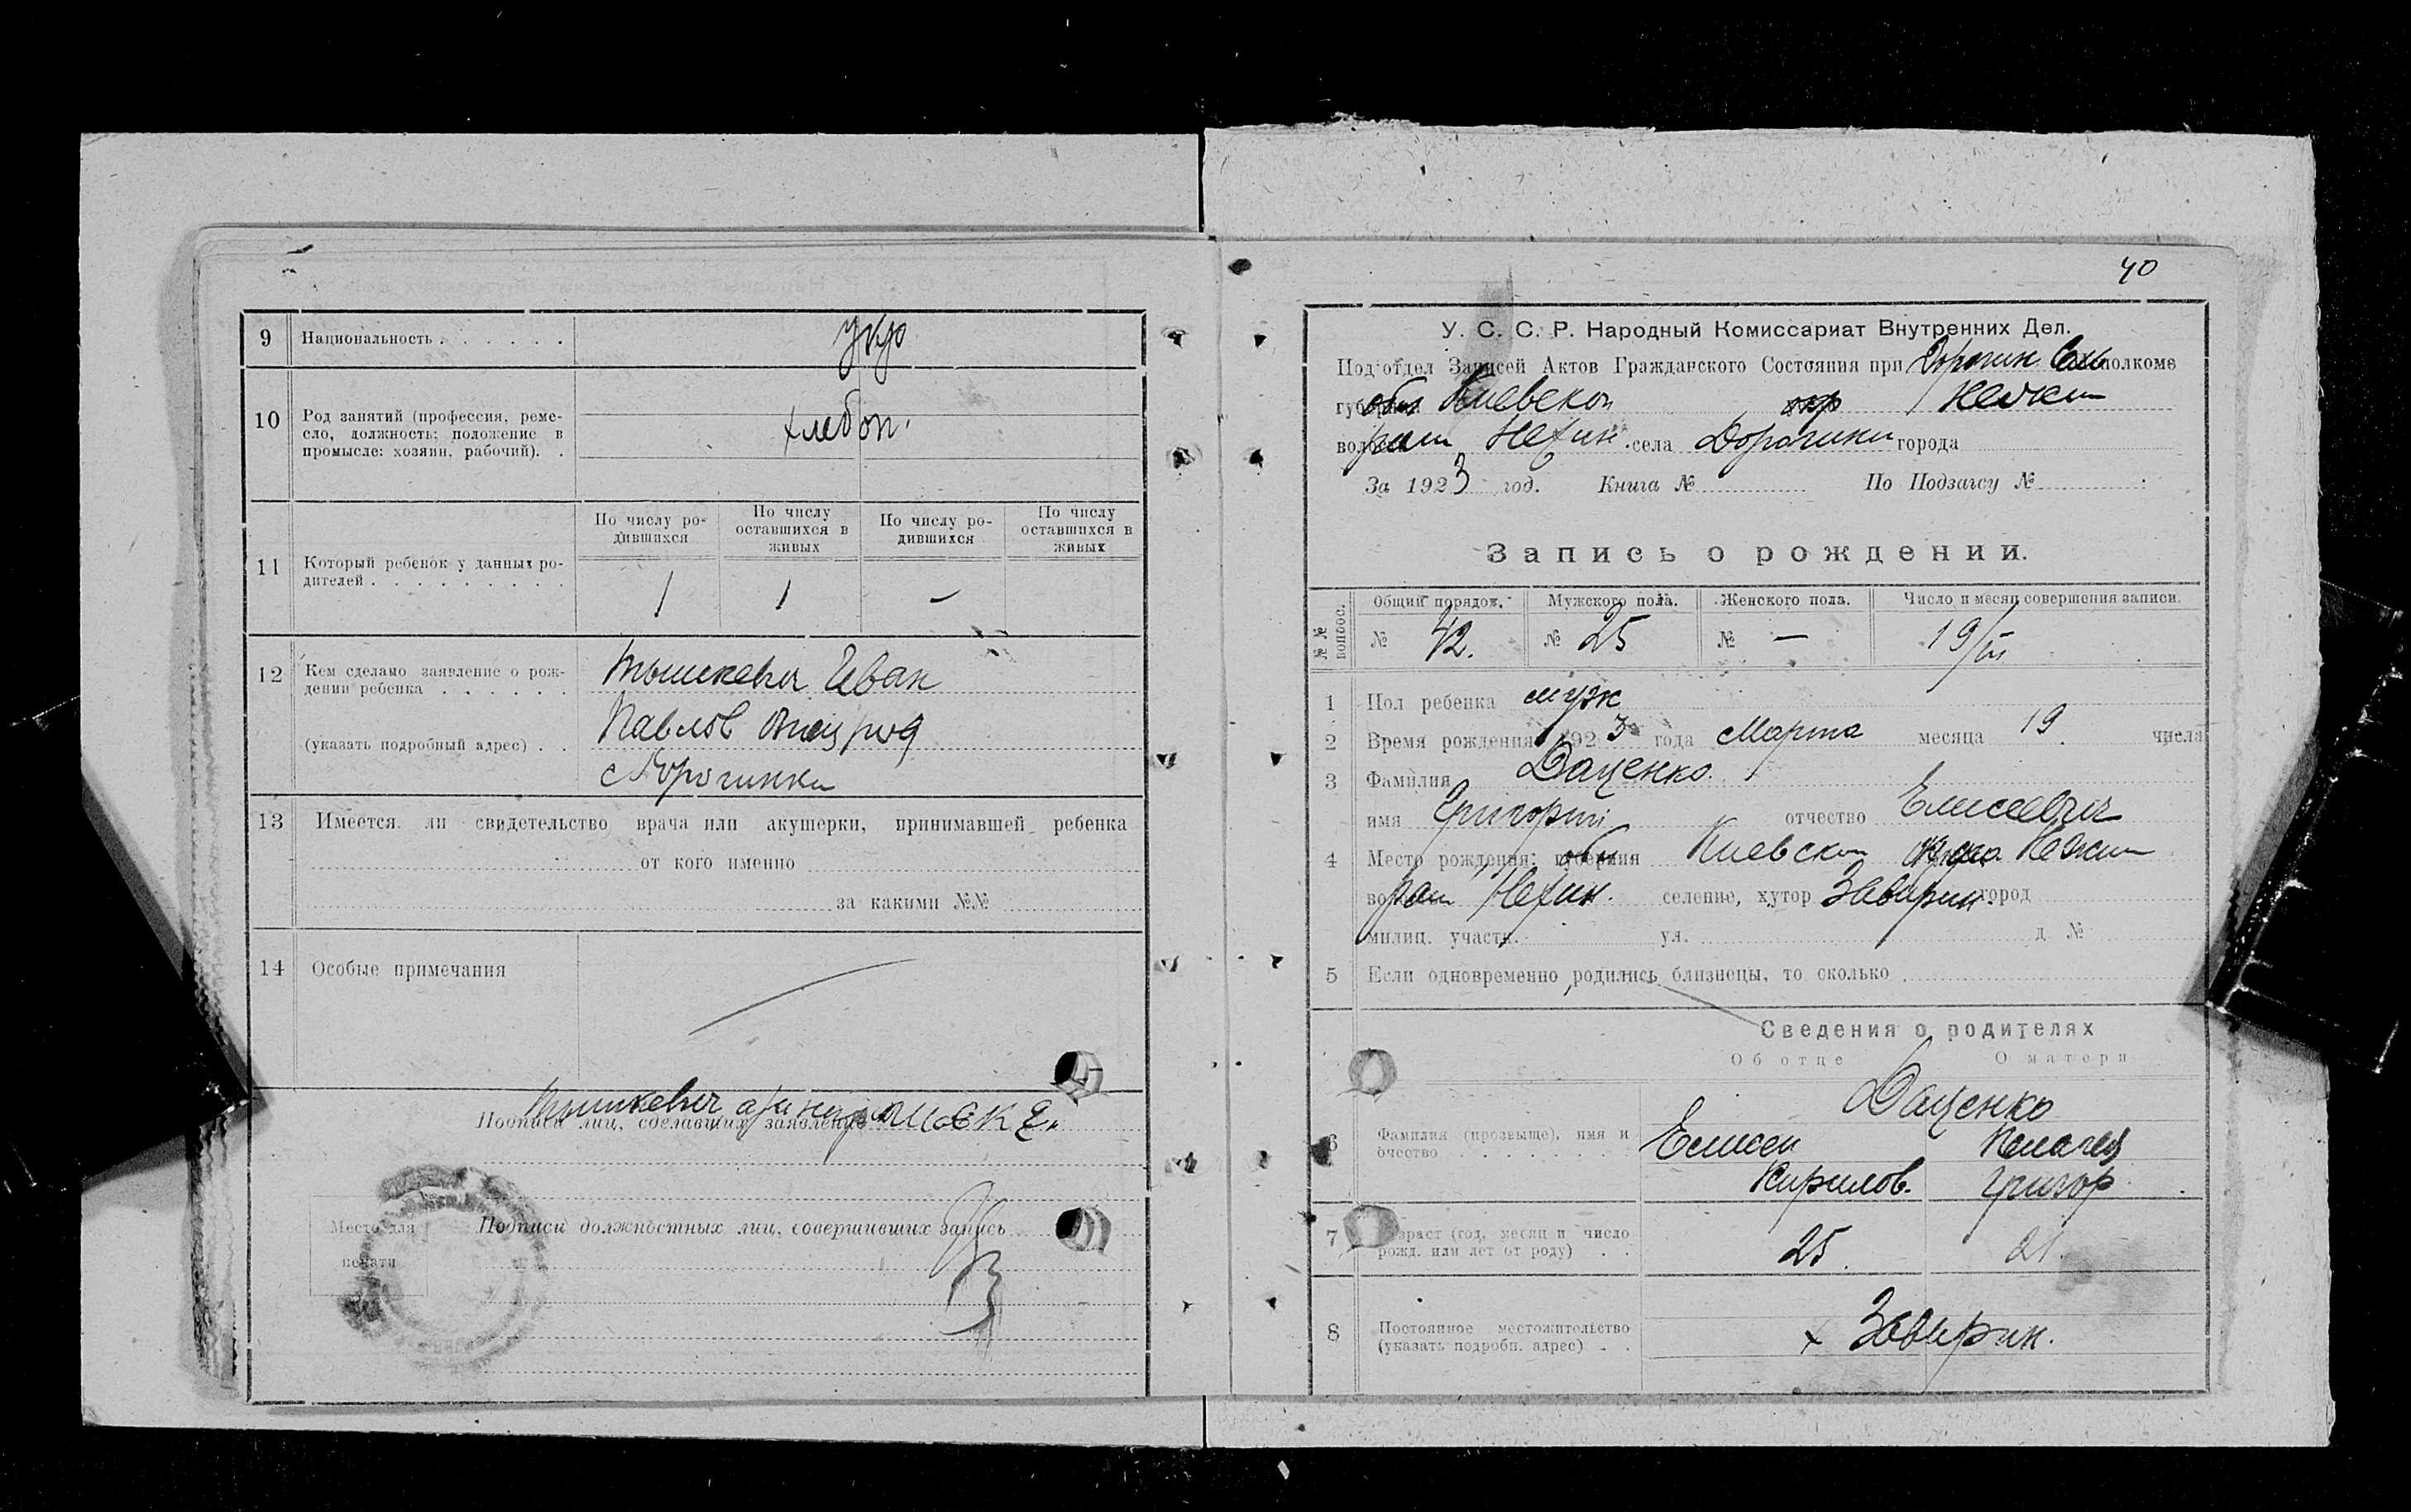 9 Национальность . . . . . . укр
10 Род занятий (профессия, реме-
сло, должность; положение в
промысле: хозяин, рабочий). .
хлебоп.
По числу ро-
дившихся
По числу
оставшихся в
живых
По числу ро-
дившихся
По числу
оставшихся в
живых
11 Который ребенок у данных ро-
дителей . . . . . . . . .
1 1 —
12 Кем сделано заявление о рож-
дении ребенка . . . . . .
(указать подробный адрес) . .
Тышкевич Иван
Павлов
с Дорогинки
13 Имеется ли свидетельство врача или акушерки, принимавшей ребенка
от кого именно
за какими №№
14 Особые примечания
Тышкевич
Подписи лиц, сделавших заявление
Место для
печати
Подписи должностных лиц, совершивших запись
40
У. С. С. Р. Народный Комиссариат Внутренних Дел.
Под'отдел Записей Актов Гражданского Состояния при Дорогин. полкоме
Киевской окр Нежин
Нежин. села Дорогинки города
За 1923 год. Книга № По Подзагсу №
Запись о рождении.
№ № вопрос.
Общий порядок. Мужского пола. Женского пола. Число и месяц совершения записи.
№ 42. № 25 № — 19/III
1 Пол ребенка муж
2 Время рождения 1923 года Марта месяца 19 числа
3 Фамилия Даценко
имя Григорий отчество Елисеевич
4 Место рождения: губерния Киевской Нежин
Нежин. селение, хутор город
милиц. участк. ул. д №
5 Если одновременно родились близнецы, то сколько
Сведения о родителях
Об отце О матери
Даценко
6 Фамилия (прозвыще), имя и
очество . . . . . . . .
Елисей Пелагея
Кирилов. Григор
7 Возраст (год, месяц и число
рожд. или лет от роду) . .
25. 21.
8 Постоянное местожительство
(указать подробн. адрес) . .
х